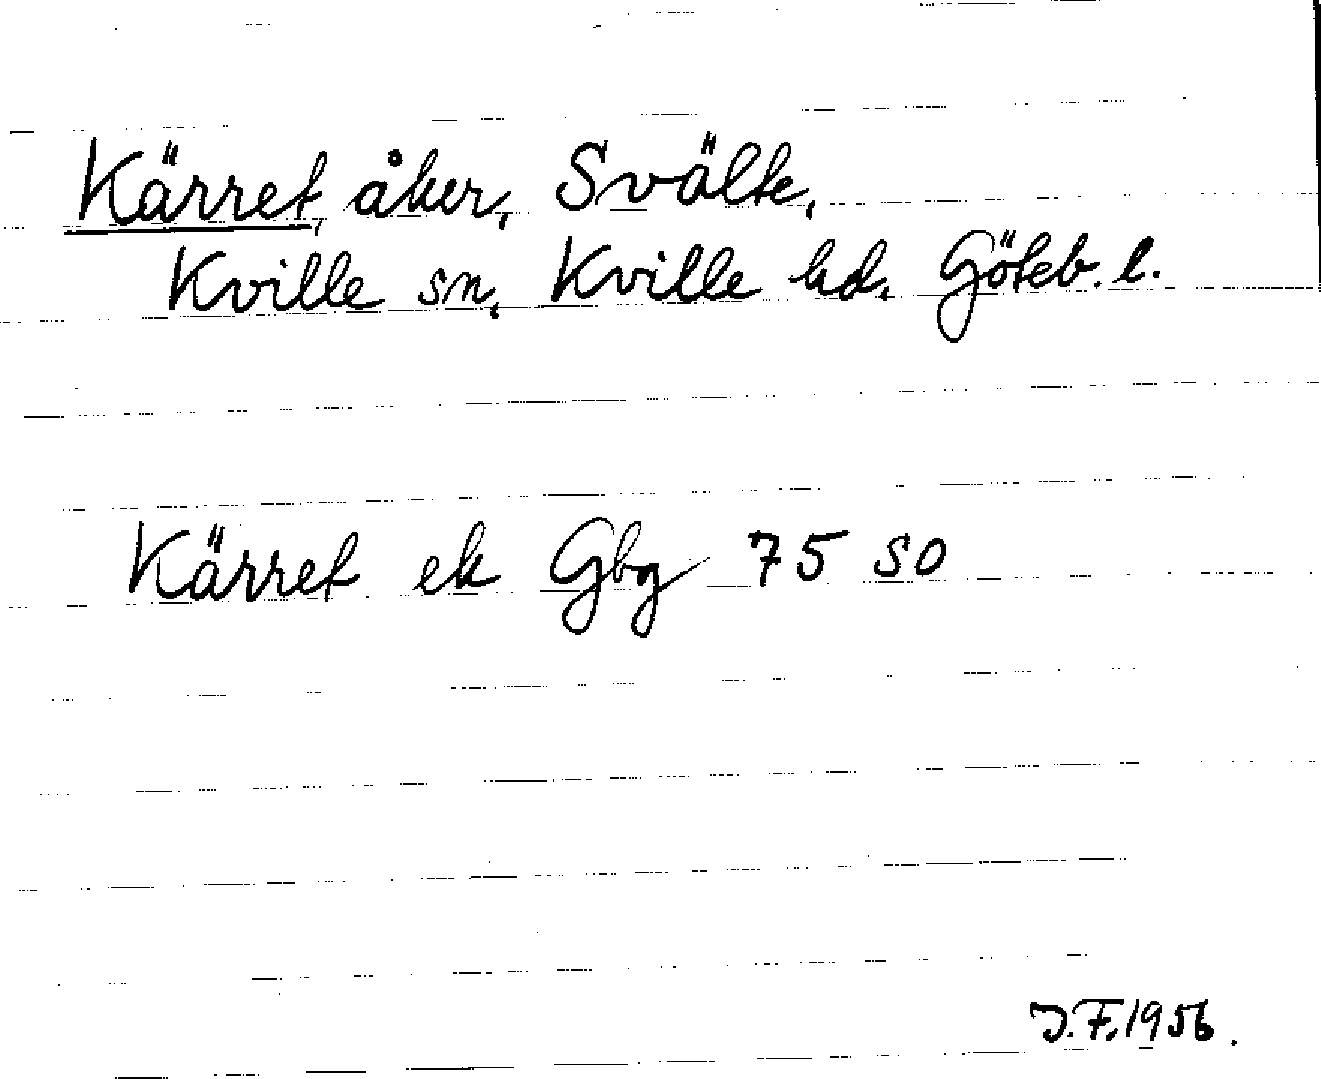 Kärret, åker, Svälte,
Kville sn, Kville hd, Göteb. l.
Kärret ek Gbg 75 SO
J.F. 1956.